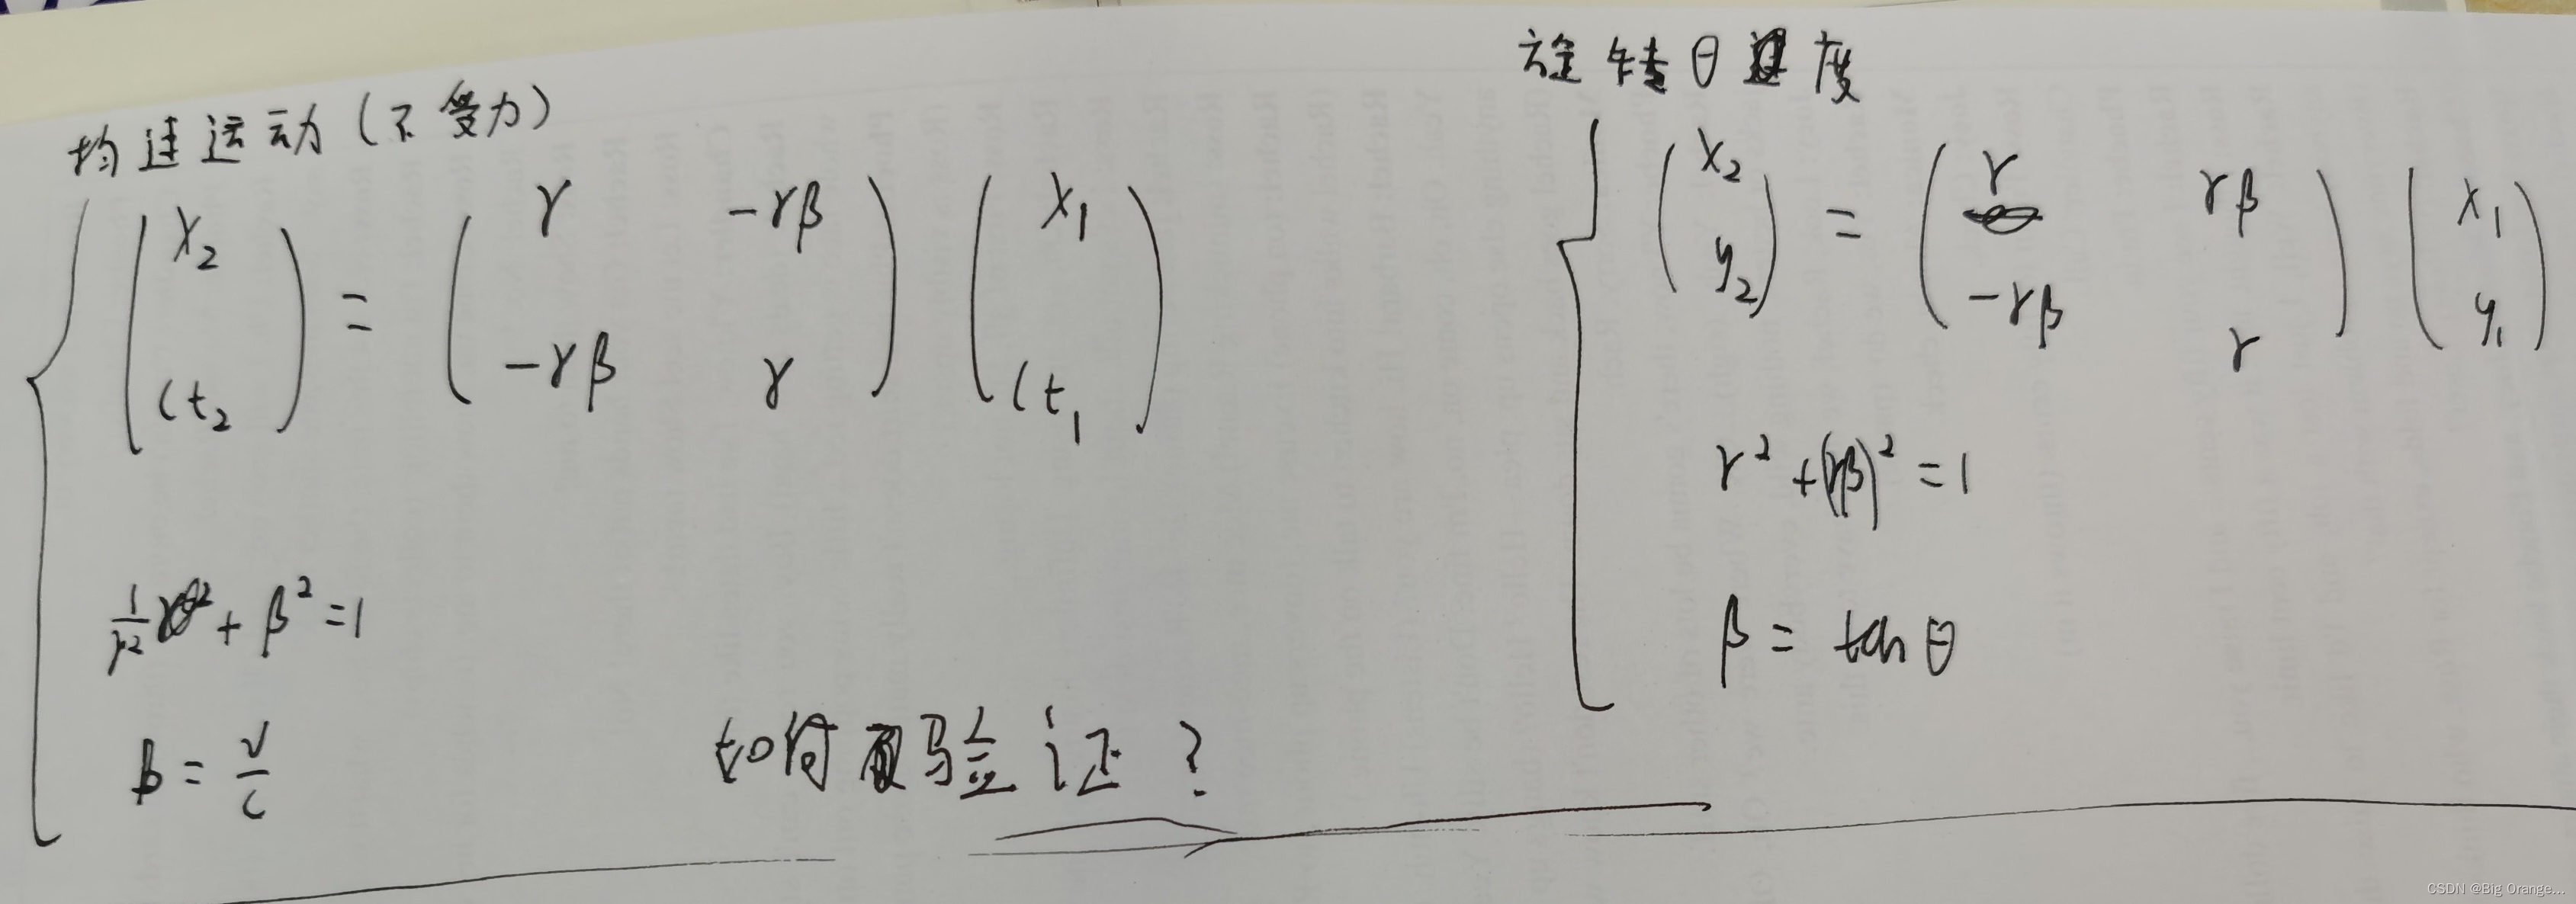 匀速运动（不受力）
(x₂ ct₂) = (γ -γβ -γβ γ) (x₁ ct₁)
1/γ² + β² = 1
β = v/c
如何验证？
旋转θ度
(x₂ y₂) = (γ γβ -γβ γ) (x₁ y₁)
γ² + (γβ)² = 1
β = tanθ
CSDN @Big Orange...